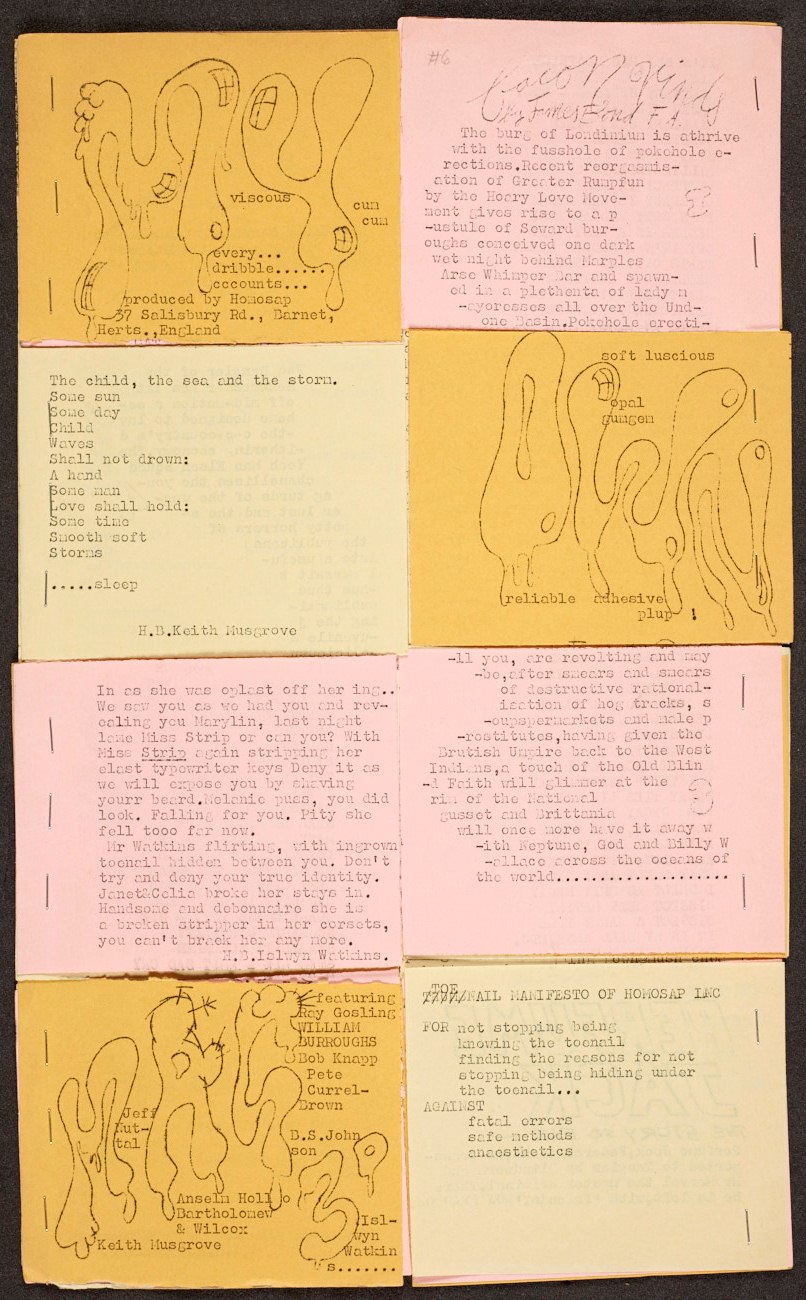 viscous
cum
cum
every...
dribble......
cccounts...
produced by Homosap
37 Salisbury Rd., Barnet,
Herts.,England
#6
The burg of Londinium is athrive
with the fusshole of pokehole e-
rections.Recent reorgasmis-
ation of Greater Rumpfun
by the Hoary Love Move-
ment gives rise to a p
-ustule of Seward bur-
oughs conceived one dark
wet night behind Marples
Arse Whimper Bar and spawn-
ed in a plethenta of lady m
-ayoresses all over the Und-
one Basin.Pokehole erecti-
The child, the sea and the storm.
Some sun
Some day
Child
Waves
Shall not drown:
A hand
Some man
Love shall hold:
Some time
Smooth soft
Storms
.....sleep
H.B.Keith Musgrove
soft luscious
opal
gumgem
reliable adhesive
plup !
In as she was oplast off her ing..
We saw you as we had you and rev-
ealing you Marylin, last night
lame Miss Strip or can you? With
Miss Strip again stripping her
elast typewriter keys Deny it as
we will expose you by shaving
yourr beard.Melanie puss, you did
look. Falling for you. Pity she
fell tooo far now.
Mr Watkins flirting, with ingrown
toenail hidden between you. Don't
try and deny your true identity.
Janet&Celia broke her stays in.
Handsome and debonnaire she is
a broken stripper in her corsets,
you can't brack her any more.
H.B.Islwyn Watkins.
-ll you, are revolting and may
-be,after smears and smears
of destructive rational-
isation of hog tracks, s
-oupspermarkets and male p
-rostitutes,having given the
Brutish Umpire back to the West
Indians,a touch of the Old Blin
-d Faith will glimmer at the
rim of the National
gusset and Brittania
will once more have it away w
-ith Neptune, God and Billy W
-allace across the oceans of
the world...................
featuring
Ray Gosling
WILLIAM
BURROUGHS
Bob Knapp
Pete
Currel-
Brown
Jeff
Nut-
tal
B.S.John
son
Anselm Hollo
Bartholomew
& Wilcox
Keith Musgrove
Isl-
wyn
Watkin
s.......
TOE
NAIL MANIFESTO OF HOMOSAP INC
FOR not stopping being
knowing the toenail
finding the reasons for not
stopping being hiding under
the toenail...
AGAINST
fatal errors
safe methods
anaesthetics